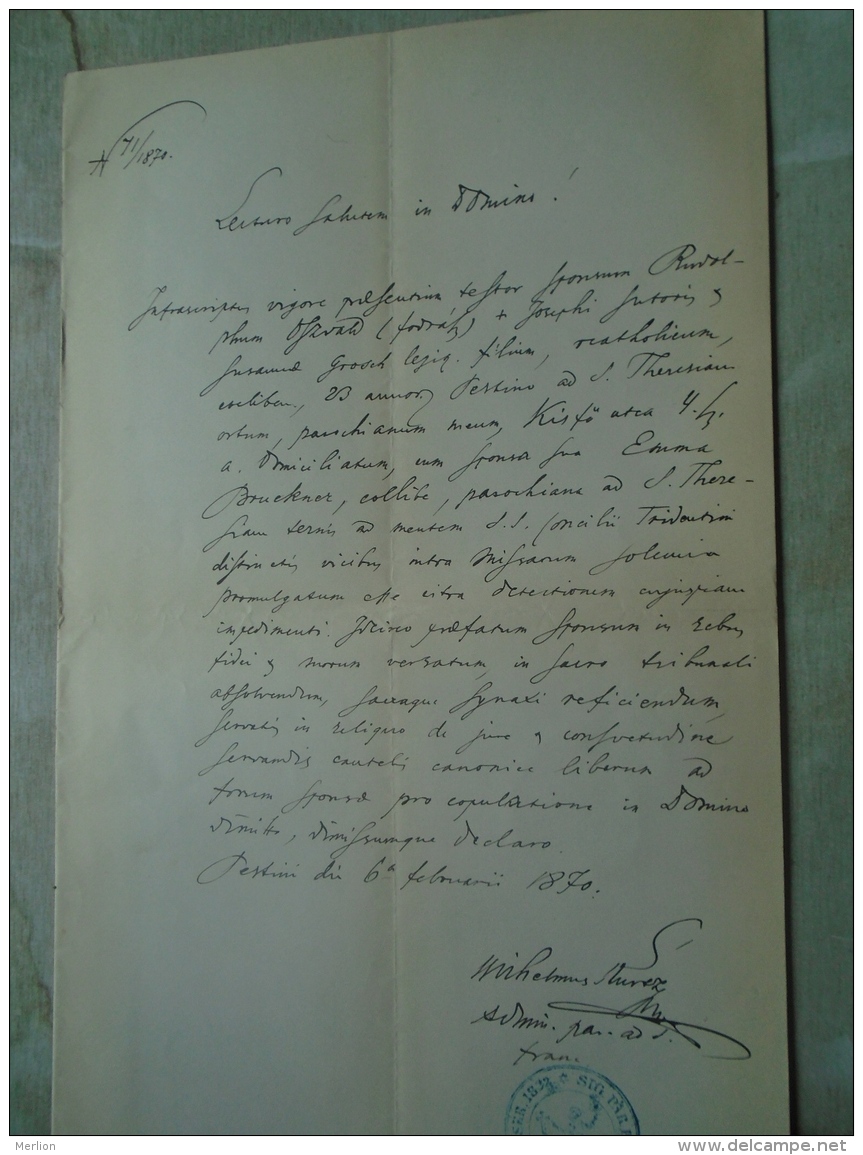 N 71/1870.
Lecturo Salutem in Domino!
Infrascriptus vigore præsentium testor sponsum Rudol-
phum Oszvald (fodrász) + Josephi sutoris &
Susannæ Grosch legig. filium, rcatholicum,
cœlibem, 23 annor. Pestino ad S. Theresiam
ortum, parochianum meum, Kisfő utca 4. sz.
a. domiciliatum, cum sponsa sua Emma
Bruckner, cœlibe, parochiana ad S. There-
siam ternis ad mentem S.S. Concilii Tridentini
distinctis vicibus intra Missarum solemnia
promulgatum esse citra detectionem cujuspiam
impedimenti. Idcirco præfatum sponsum in rebus
fidei & morum versatum, in sacro tribunali
absolvendum, sacraque synaxi reficiendum,
servatis in reliquo de jure & consvetudine
servandis cautelis canonice liberum ad
forum sponsæ pro copulatione in Domino
dimitto, dimissumque declaro.
Pestini die 6a februarii 1870.
Wilhelmus
Admin. par. ad S.
Franc.
1832 * SIG. PAR.
Merlion
www.delcampe.net